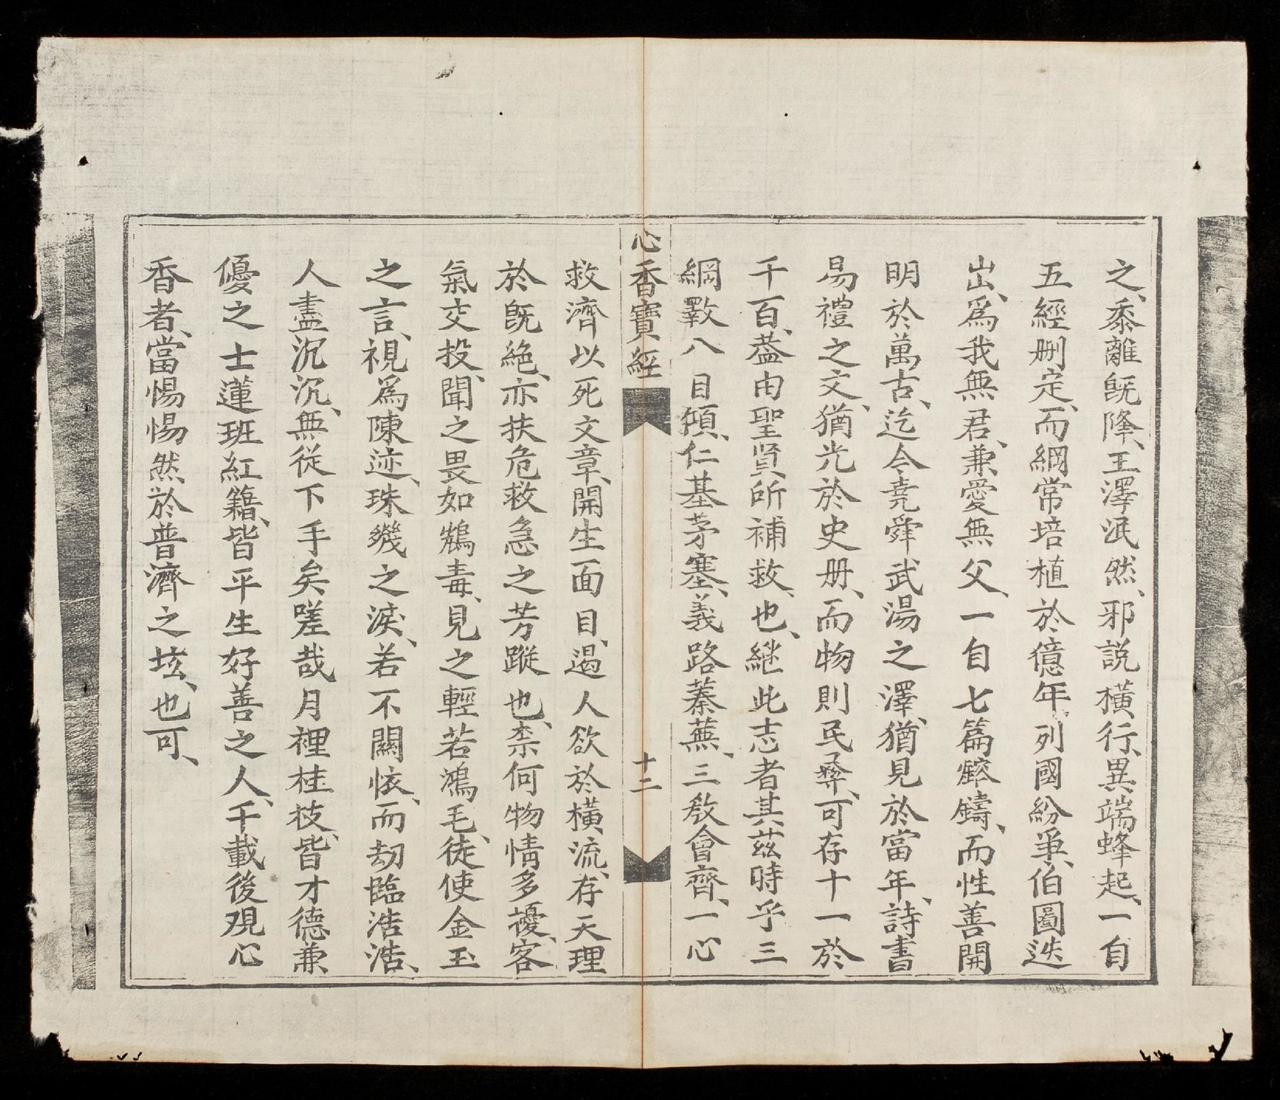 之、黍離旣降、王澤泯然、邪說橫行、異端蜂起、一自
五經刪定、而綱常培植於億年、列國紛爭、伯圖迭
出、爲我無君、兼愛無父、一自七篇鎔鑄、而性善開
明於萬古、迄今堯舜武湯之澤、猶見於當年、詩書
易禮之文、猶光於史册、而物則民彝、可存十一於
千百、葢由聖賢所補救、也、継此志者其玆時乎三
綱斁八目傾、仁基茅塞、義路蓁蕪、三敎會齊、一心
心香寶經
十二
救濟以死文章、開生面目、遏人欲於橫流、存天理
於旣絶、亦扶危救急之芳蹤也、柰何物情多擾、客
氣交投、聞之畏如鴆毒、見之輕若鴻毛、徒使金玉
之言、視爲陳迹、珠璣之淚、若不關怀、而刼臨浩浩、
人盡沉沉、無從下手矣嗟哉月裡桂枝、皆才德兼
優之士蓮班紅籍、皆平生好善之人、千載後覌心
香者、當惕惕然於普濟之垓、也可、